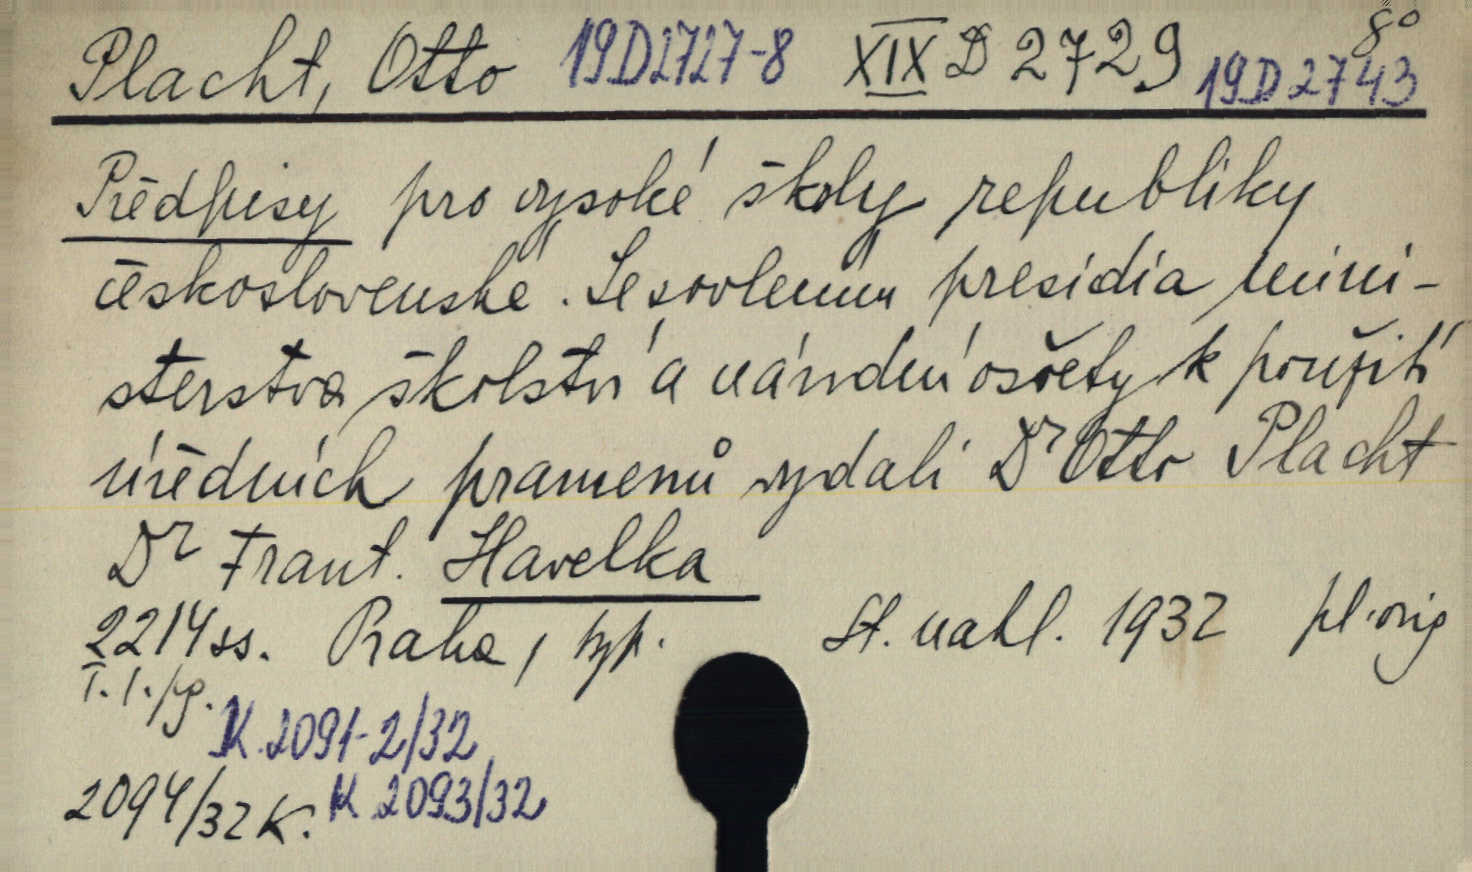 Placht, Otto 19D2727-8 XIX D 2729 8° 19D2743
Předpisy pro vysoké školy republiky
československé. Se svolením presidia mini-
sterstva školství a národní osvěty k použití
úředních pramenů vydali Dr Otto Placht
Dr Frant. Havelka
2214 ss. Praha, typ. St. nakl. 1932 pl. orig
T. I. pg.
K 2091-2/32
2094/32 K. K 2093/32